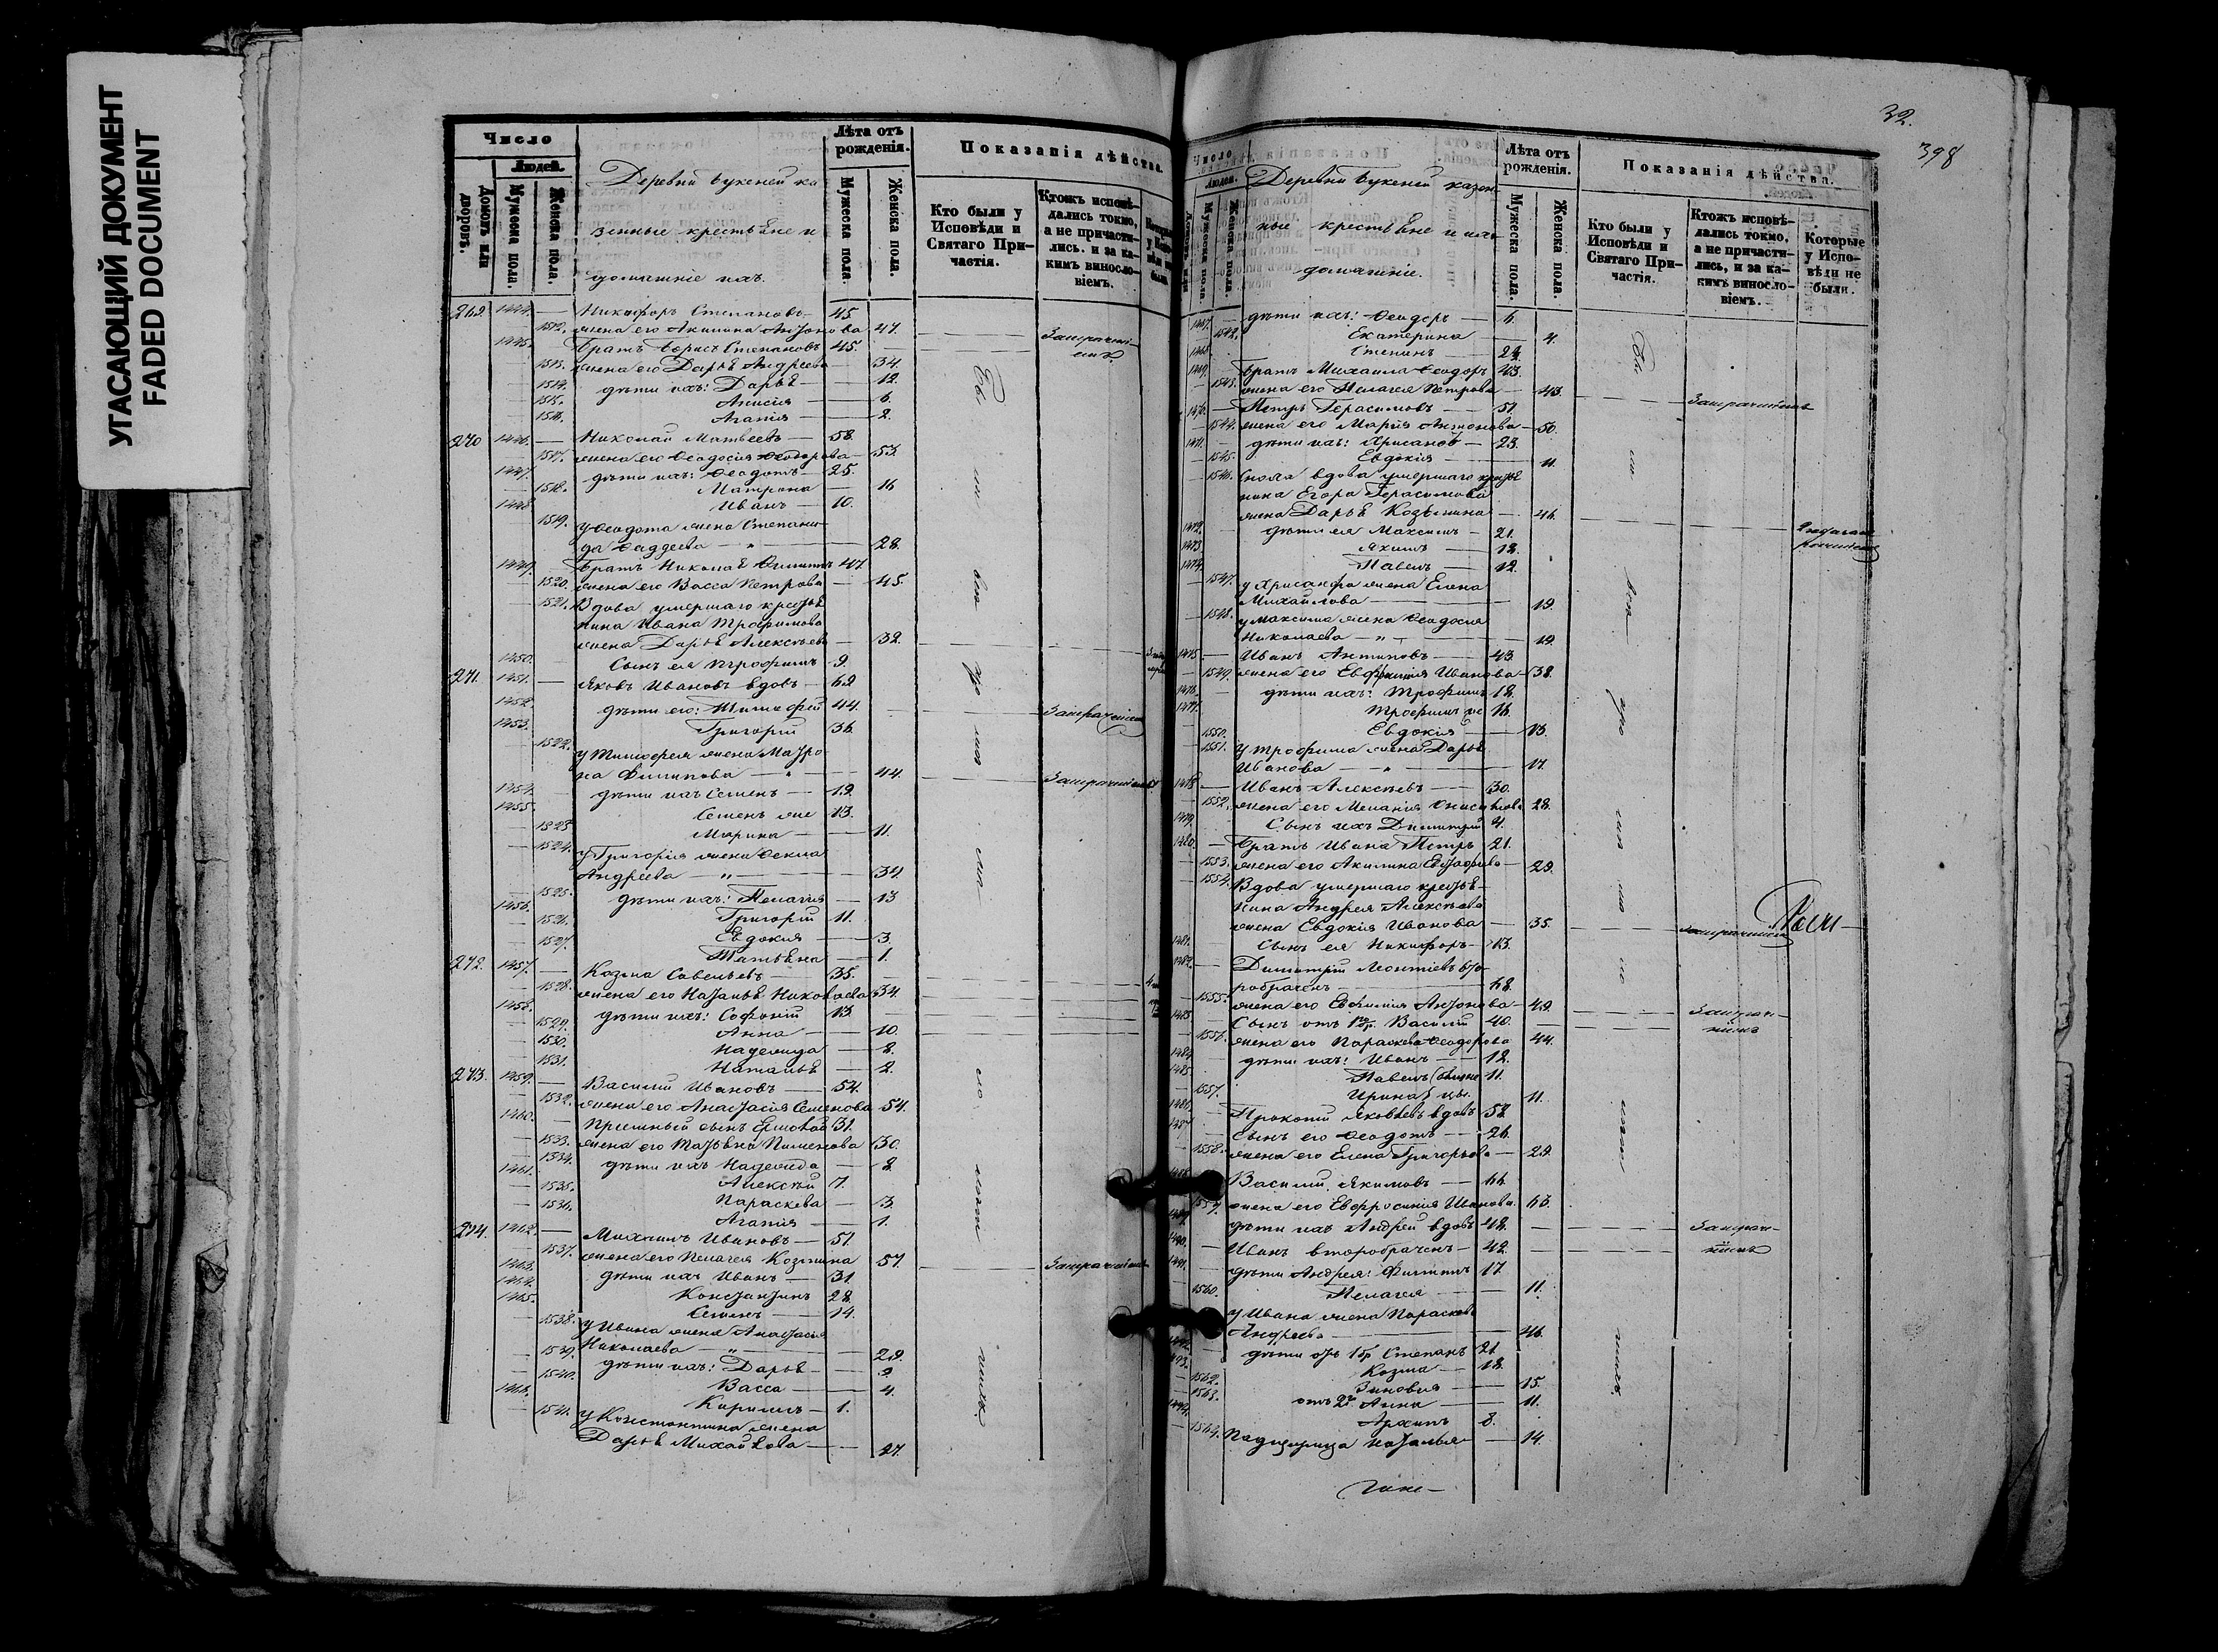 УГАСАЮЩИЙ ДОКУМЕНТ
FADED DOCUMENT
Число
Людей.
Домовъ или дворовъ.
Мужеска пола.
Женска пола.
Деревни Букеней ка
зенные крестьяне и
домашніе ихъ.
Лѣта отъ рожденія.
Мужеска пола.
Женска пола.
Показанія дѣйства.
Кто были у Исповѣди и Святаго Причастія.
Ктожъ исповѣдались токмо, а не причастились, и за какимъ винословіемъ.
269. 1444. — Никифоръ Степановъ — 45
1512. жена его Акилина Антонова 47.
1445. Братъ Борисъ Степановъ 45.
1513. жена его Дарья Андреева — 34.
1514. дѣти ихъ: Дарья — 12.
1515. Анисія — 6.
1516. Агапія — 2.
270 1446. — Николай Матвеевъ — 58.
1517. жена его Ѳеодосія Ѳеодорова — 53.
1447. дѣти ихъ: Ѳеодотъ — 25.
1518. Матрона — 16
1448. Иванъ — 10.
1519. у Ѳеодота жена Степани
да Ѳаддеева — 28.
1449. Братъ Николая Филиппъ 47
1520. жена его Васса Петрова — 45.
1521. Вдова умершаго кресть
нина Ивана Трофимова
жена Дарья Алексѣева — 32.
1450. Сынъ ея Трофимъ — 9.
271. 1451. — Яковъ Ивановъ вдовъ — 62
1452. дѣти его: Тимофей 44.
1453. Григорій 36.
1522. у Тимофея жена Матро
на Филипова — 44.
1454. дѣти ихъ Семенъ — 19.
1455. Семенъ же 13.
1523 Марина — 11.
1524. у Григорія жена Ѳекла
Андреева — 34.
1525. дѣти ихъ: Пелагія — 13
1456. Григорій 11.
1526. Евдокія — 3.
1527. Татьяна — 1.
272. 1457. — Козма Савельевъ — 35.
1528. жена его Наталья Николаева 34.
1458. дѣти ихъ: Софоній 13.
1529. Анна — 10.
1530. Надежда — 8.
1531. Наталья — 2.
273. 1459. — Василій Ивановъ — 54.
1532. жена его Анастасія Семенова 54.
1460. Пріемный сынъ 31.
1533. жена его Татьяна Пименова 30.
1534. дѣти ихъ Надежда — 8
1461. Алексѣй 7.
1535. Параскева — 3.
1536. Агапія — 1.
274. 1462. — Михаилъ Ивановъ — 51.
1537. жена его Пелагея Козмина 57.
1463. дѣти ихъ Иванъ — 31.
1464. Константинъ 28.
1465. Семенъ — 14.
1538. у Ивана жена Анастасія
Николаева — 29.
1539. дѣти ихъ: Дарья — 9
1540. Васса — 4.
1466. Кириллъ — 1.
1541. у Константина жена
Дарья Михайлова — 27.
32.
398
Число
Людей.
Мужеска пола
Женска пола.
Деревни Букеней казен
ные крестьяне и ихъ
домашніе.
Лѣта отъ рожденія.
Мужеска пола.
Женска пола.
Показанія дѣйства.
Кто были у Исповѣди и Святаго Причастія.
Ктожъ исповѣдались токмо, а не причастились, и за какимъ винословіемъ.
Которые у Исповѣди не были.
1467. дѣти ихъ: Ѳеодоръ — 6.
1542. Екатерина — 4.
1468. Степанъ — 23.
1469. Братъ Михаила Ѳеодоръ 43.
1543. жена его Пелагея Петрова — 43.
1470. — Петръ Герасимовъ — 51.
1544. жена его Марія Антонова — 50.
1471. дѣти ихъ: Хрисанфъ — 23.
1545. Евдокія — 11.
1546. Сноха вдова умершаго крестья
нина Егора Герасимова
жена Дарья Козьмина — 46.
1472. дѣти ея Максимъ — 21.
1473 Якимъ — 18.
1474. Павелъ — 12.
1547. у Хрисанфа жена Елена
Михайлова — 19.
1548. у Максима жена Ѳеодосія
Николаева — 19.
1475 — Иванъ Антиповъ — 43.
1549. жена его Евфимія Иванова — 38.
1476. дѣти ихъ: Трофимъ 18.
1477. Трофимъ же 16.
1550. Евдокія — 13.
1551. у Трофима жена Дарья
Иванова — 17.
1478 — Иванъ Алексѣевъ — 30.
1552. жена его Меланія 28.
1479. Сынъ ихъ Димитрій 4.
1480. Братъ Ивана Петръ 21.
1553. жена его Акилина — 23.
1554. Вдова умершаго крестья
нина Андрея Алексѣева
жена Евдокія Иванова — 35.
1481. Сынъ ея Никифоръ — 13.
1482. — Димитрій Леонтіевъ вто
робраченъ — 68.
1555. жена его Евфимія Антонова — 49.
1483 Сынъ отъ Василій 40.
жена его Параскева Ѳеодорова 44.
1484. дѣти ихъ: Иванъ — 12.
1485. Павелъ 11.
1557. Ирина 11.
1486. — Прокопій Яковлевъ вдовъ 58.
1487 Сынъ его Ѳеодотъ — 26.
1558. жена его Елена Григорьева — 29.
1488. Василій Якимовъ — 66.
1559. жена его Евфросинія Иванова. 63.
1489. дѣти ихъ Андрей вдовъ 48.
1490. Иванъ второбраченъ — 42.
1491. дѣти Андрея: Филиппъ 17.
1560. Пелагея — 11.
у Ивана жена Параскева
Андреева — 46.
1492. дѣти отъ 1 бр Степанъ 21.
1493. Козма — 18.
1562. Зиновія — 15.
1563. отъ 2го Анна — 11.
1494. Архипъ 8.
1564. Падчерица Наталья — 14.